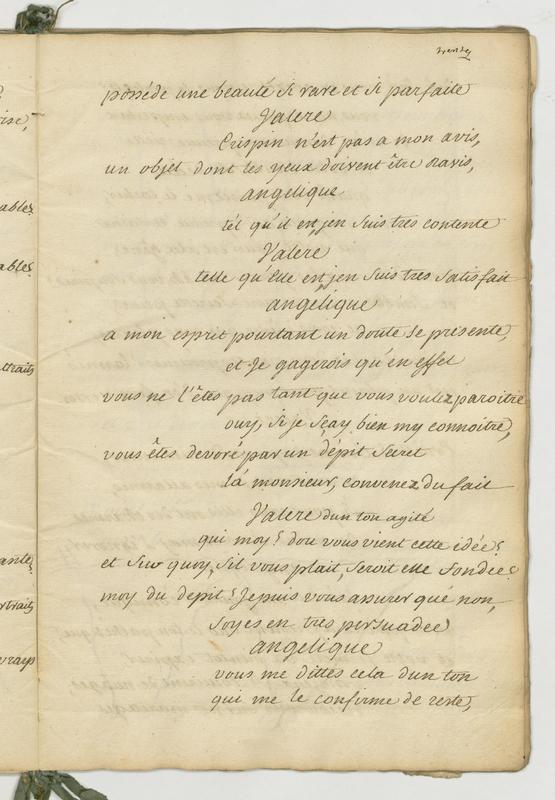 possède une beauté si rare et si parfaite
Valere
Crispin n'est pas a mon avis,
un objet dont les yeux doivent être ravis,
angelique
tel qu'il est, jen suis tres contente
Valere
telle qu'elle est, jen suis tres satisfait
angelique
a mon esprit pourtant un doute se presente,
et Je gagerois qu'en effet
vous ne l'êtes pas tant que vous voulez paroitre
ouy, si je sçay bien my connoitre,
vous êtes devoré par un dépit secret
la monsieur, convenez du fait
Valere dun ton agité
qui moy? dou vous vient cette idée?
et sur quoy, sil vous plait, seroit elle fondée?
moy du depit? Je puis vous assurer que non,
soyes en tres persuadée
angelique
vous me dittes cela dun ton
qui me le confirme de reste,
ise,
ables
ables
ttraits
ante
rtraits
vrays